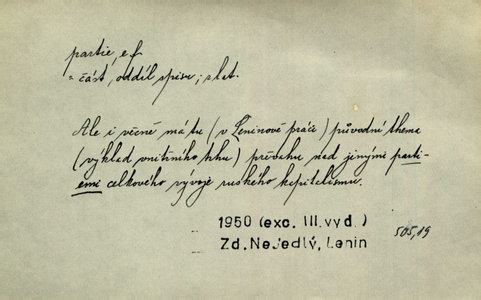 partie, e f.
= část, oddíl spisu; slat.
Ale i věcně má tu (v Leninově práci) původní thema
(výklad vnitřního trhu) převahu nad jinými parti-
emi celkového vývoje ruského kapitalismu.
1950 (exc. III.vyd.)
Zd. Nejedlý, Lenin
505,19